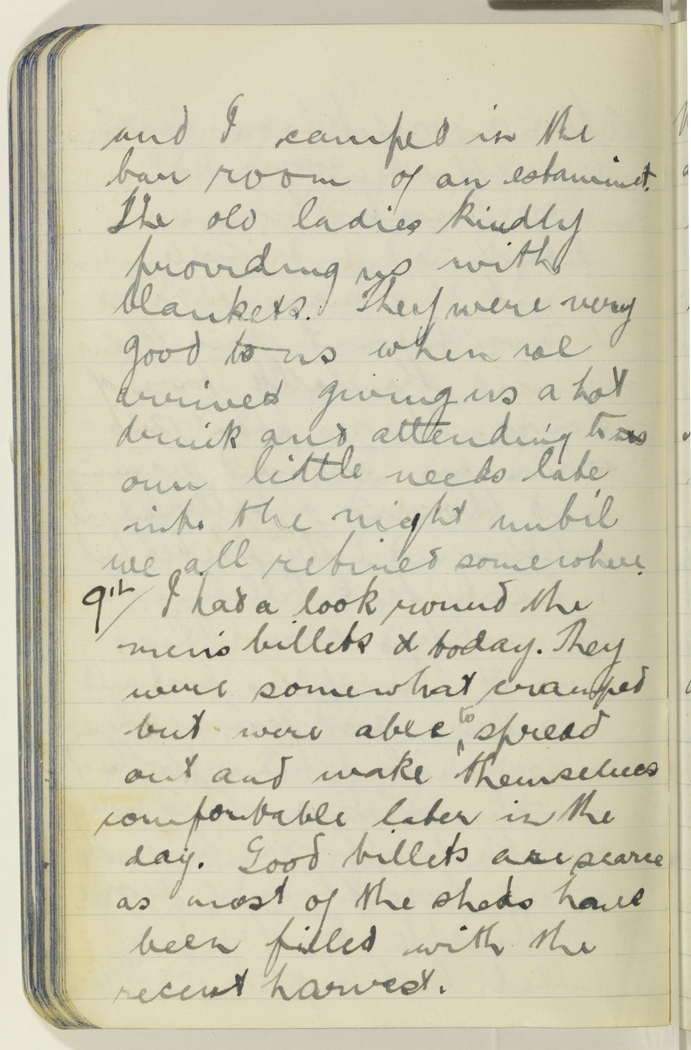 and I camped in the
bar room of an estaminet.
The old ladies kindly
providing us with
blankets. They were very
good to us when we
arrived giving us a hot
drink and attending to
our little needs late
into the night until
we all retired somewhere.
9th/ I had a look round the
men's billets & today. They
were somewhat cramped
but were able to spread
out and make themselves
comfortable later in the
day. Good billets are scarce
as most of the sheds have
been filled with the
recent harvest.